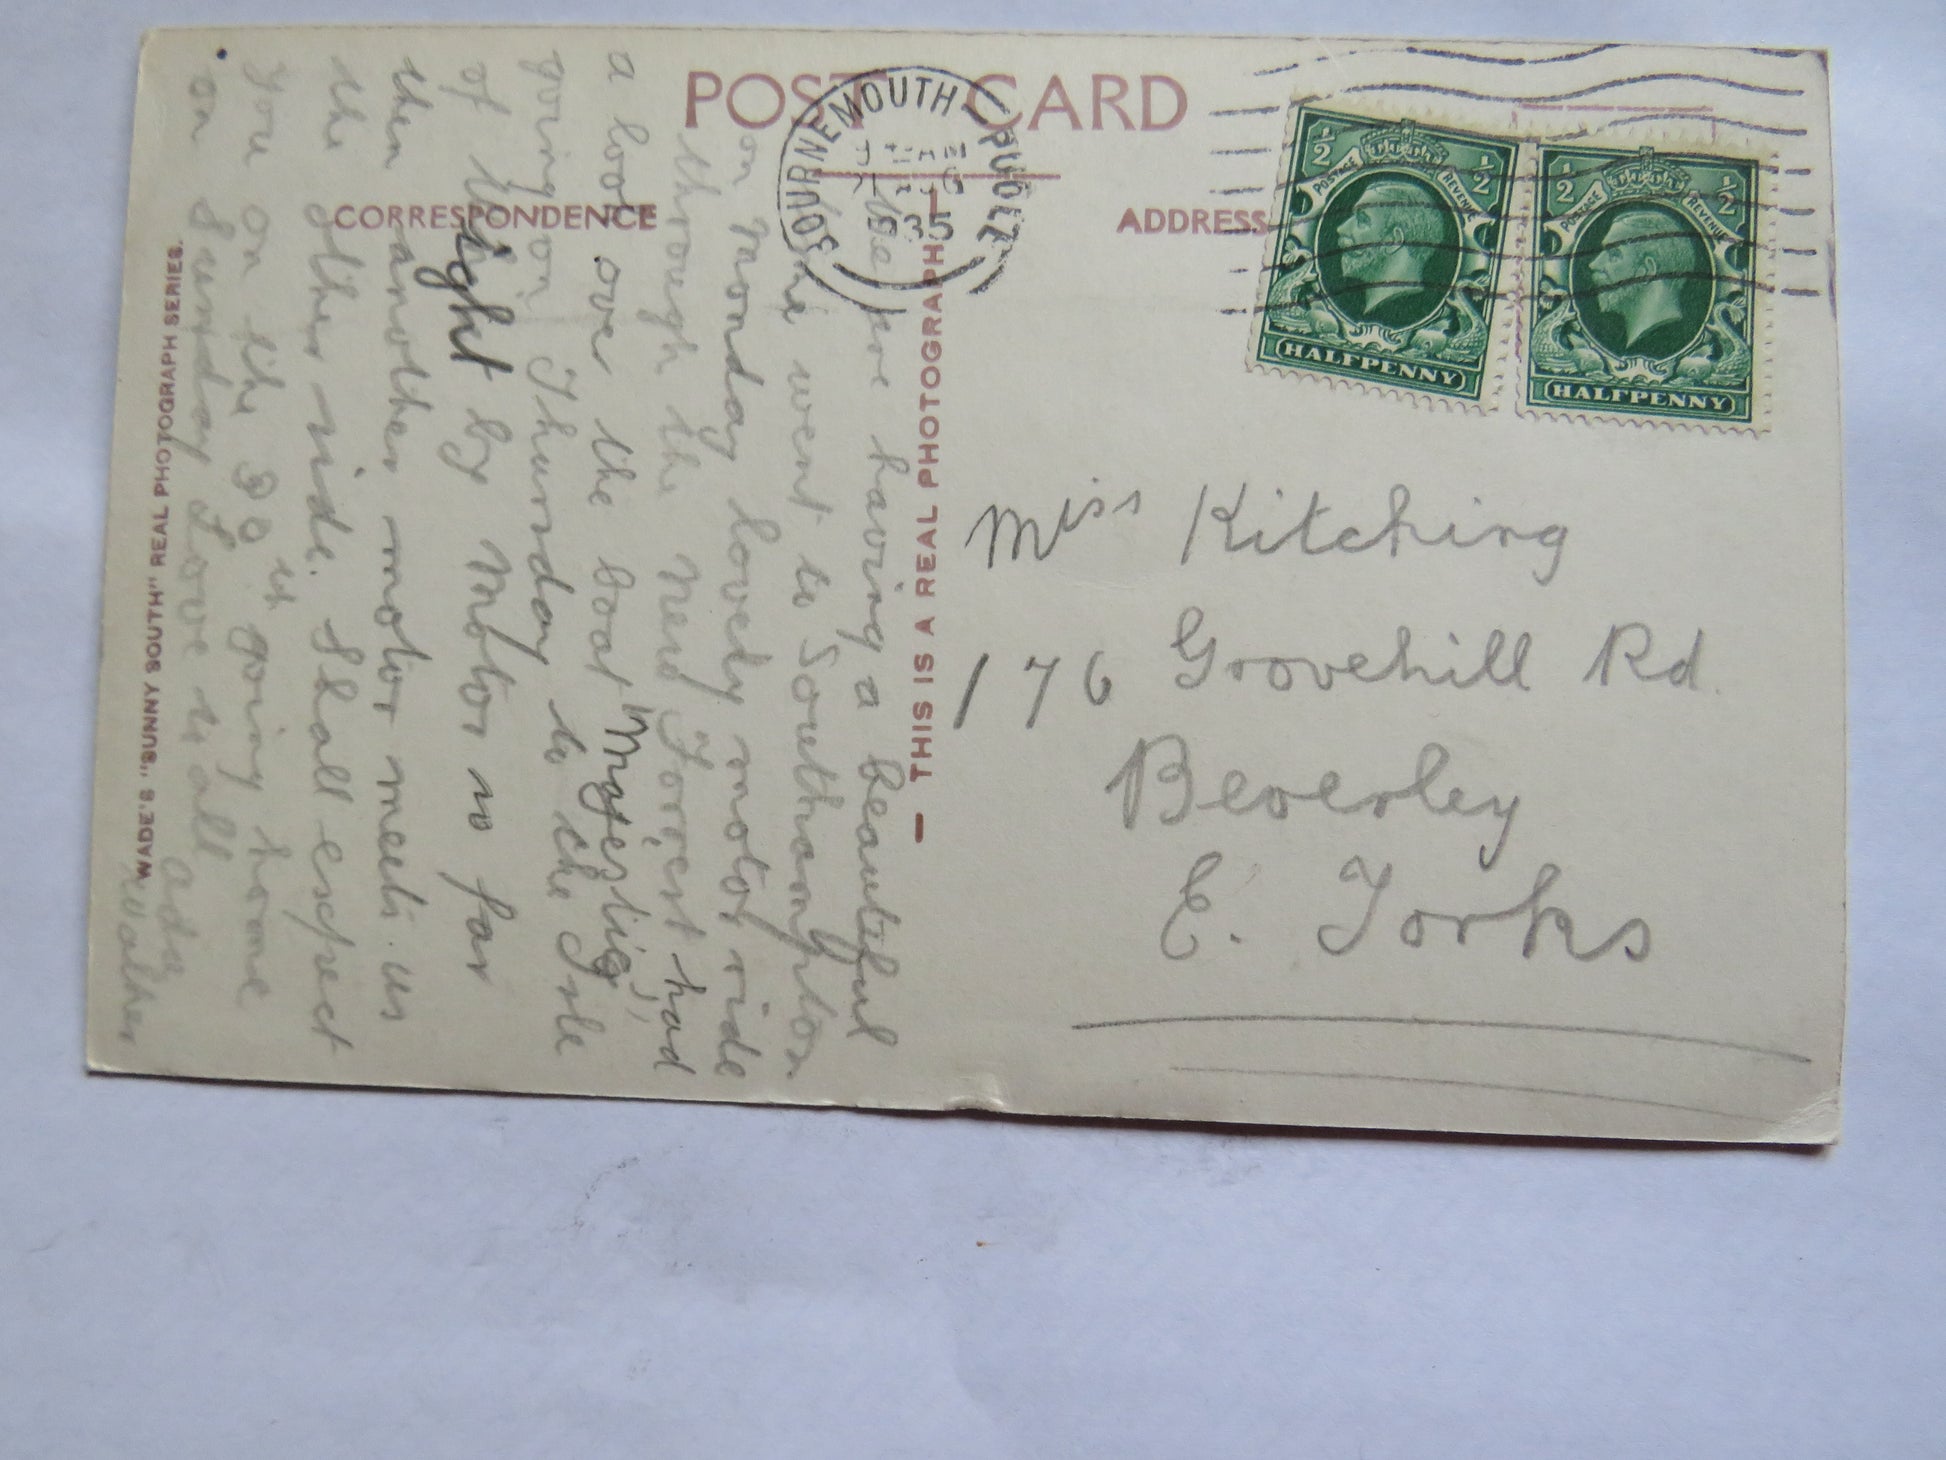 POST CARD
CORRESPONDENCE
ADDRESS
BOURNEMOUTH-POOLE
1935
½ ½
POSTAGE REVENUE
HALFPENNY
½ ½
POSTAGE REVENUE
HALFPENNY
Miss Kitching
176 Grovehill Rd.
Beverley
E. Yorks
THIS IS A REAL PHOTOGRAPH
We are having a beautiful
time went to Southampton
on Monday lovely motor ride
through the New Forrest had
a look over the boat "Majestic",
going on Thursday to the Isle
of Wight by Motor so far
then another motor meets us
the other side. Shall expect
you on the 30th going home
on Sunday Love to all
Ada
Walter
WADE'S "SUNNY SOUTH" REAL PHOTOGRAPH SERIES.